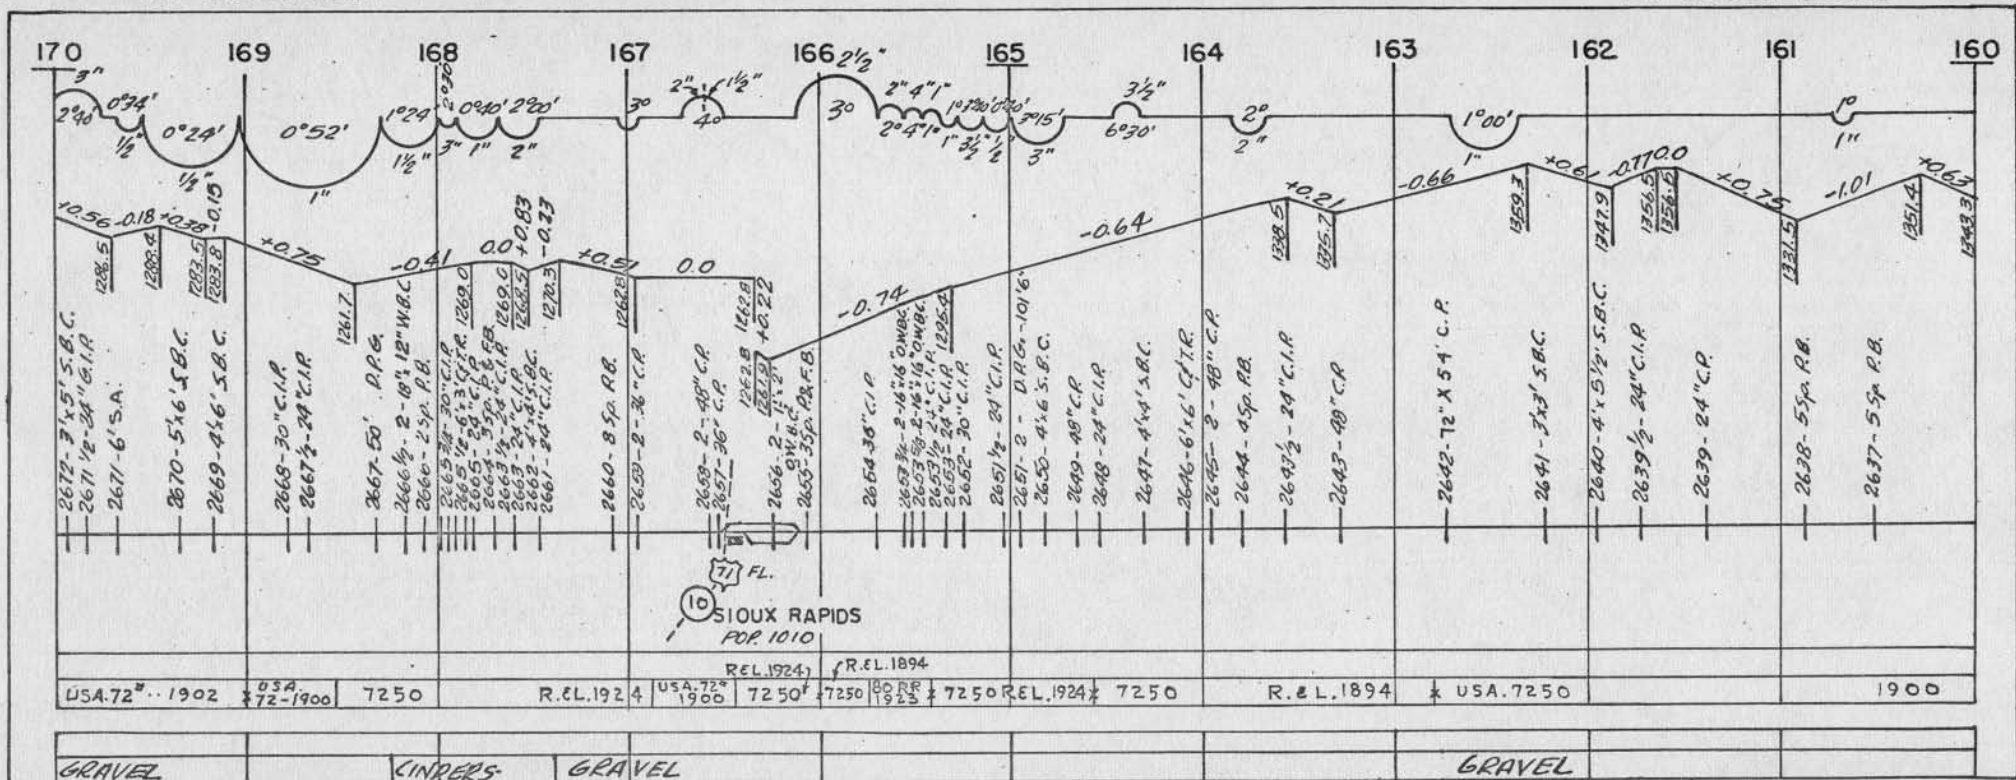 170 169 168 167 166 165 164 163 162 161 160
3" 2°40' 0°34' ½ 0°24' ½" 0°52' 1" 1°24' 1½" 2°30' 3" 0°40' 1" 2°00' 2" 3° 2" 1½" 4° 3° 2½" 2" 4" 1" 2° 4° 1° 1° 1" 3½" ½" 3°15' 3" 3½" 6°30' 2° 2" 1°00' 1" 1° 1"
+0.56 -0.18 +0.38 -0.15 +0.75 -0.41 0.0 +0.83 -0.23 +0.51 0.0 +0.22 -0.74 -0.64 +0.21 -0.66 +0.61 -0.77 0.0 +0.75 -1.01 +0.63
1286.5 1289.4 1283.5 1283.8 1261.7 1269.0 1269.0 1268.5 1270.3 1262.8 1262.8 1262.8 1261.9 1295.4 1338.5 1335.7 1359.3 1347.9 1356.5 1356.5 1331.5 1351.4 1343.3
2672-3'x5' S.B.C.
2671½-24" G.I.P.
2671-6' S.A.
2670-5'x6' S.B.C.
2669-4'x6' S.B.C.
2668-30" C.I.P.
2667½-24" C.I.P.
2667-50' D.P.G.
2666½-2-18"x12" W.B.C.
2666-2 Sp. P.B.
2665¾-30" C.I.P.
2665½-6'x3' C.T.R.
2665-24" C.I.P.
2664-3 Sp. P.& F.B.
2663½-24" C.I.P.
2663-24" C.I.P.
2662-4'x4' S.B.C.
2661-24" C.I.P.
2660-8 Sp. P.B.
2659-2-36" C.P.
2658-2-48" C.P.
2657-36" C.P.
2656-2-1'x2' O.W.B.C.
2655-3 Sp. P.& F.B.
2654-36" C.I.P.
2653¾-2-16"x16" O.W.B.C.
2653⅝-2-16"x16" O.W.B.C.
2653½-24" C.I.P.
2653-24" C.I.P.
2652-30" C.I.P.
2651½-24" C.I.P.
2651-2-D.P.G.-101'6"
2650-4'x6' S.B.C.
2649-48" C.P.
2648-24" C.I.P.
2647-4'x4' S.B.C.
2646-6'x6' C.T.R.
2645-2-48" C.P.
2644-4 Sp. P.B.
2643½-24" C.I.P.
2643-48" C.P.
2642-72" X 54' C.P.
2641-3'x3' S.B.C.
2640-4'x5½' S.B.C.
2639½-24" C.I.P.
2639-24" C.P.
2638-5 Sp. P.B.
2637-5 Sp. P.B.
71 FL.
10
SIOUX RAPIDS
POP. 1010
REL.1924 R.&L.1894
USA.72# 1902 USA 72-1900 7250 R.&L.1924 USA.72# 1900 7250 7250 80 RR 1923 7250 R.&L.1924 7250 R.&L.1894 USA.7250 1900
GRAVEL CINDERS GRAVEL GRAVEL